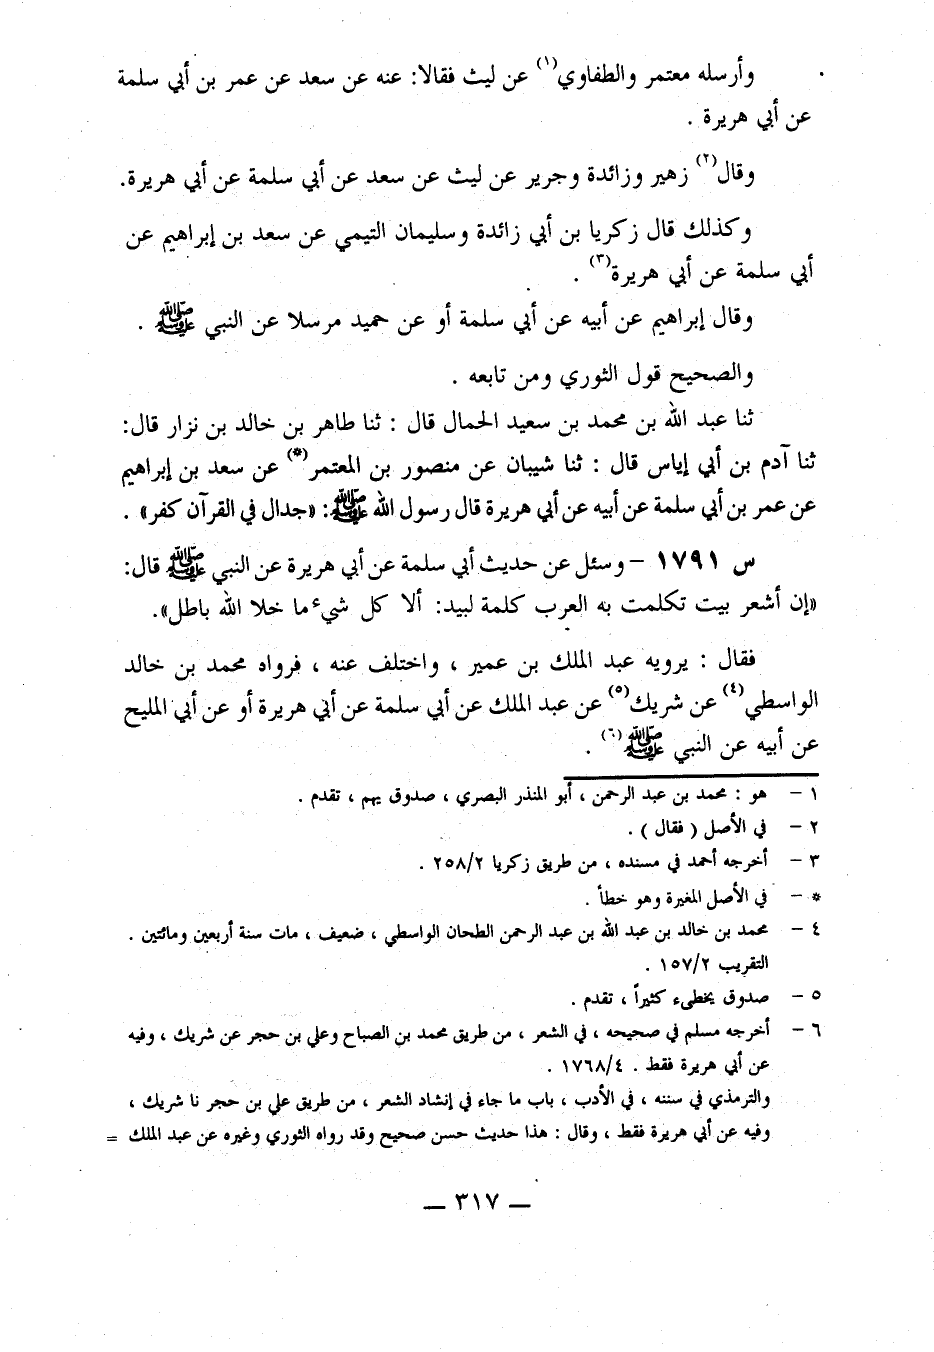 وأرسله معتمر والطفاوي(١) عن ليث فقالا: عنه عن سعد عن عمر بن أبي سلمة
عن أبي هريرة .
وقال(٢) زهير وزائدة وجرير عن ليث عن سعد عن أبي سلمة عن أبي هريرة.
وكذلك قال زكريا بن أبي زائدة وسليمان التيمي عن سعد بن إبراهيم عن
أبي سلمة عن أبي هريرة(٣) .
وقال إبراهيم عن أبيه عن أبي سلمة أو عن حميد مرسلا عن النبي ﷺ .
والصحيح قول الثوري ومن تابعه .
ثنا عبد الله بن محمد بن سعيد الحمال قال : ثنا طاهر بن خالد بن نزار قال:
ثنا آدم بن أبي إياس قال : ثنا شيبان عن منصور بن المعتمر(*) عن سعد بن إبراهيم
عن عمر بن أبي سلمة عن أبيه عن أبي هريرة قال رسول الله ﷺ: «جدال في القرآن كفر» .
س ١٧٩١ – وسئل عن حديث أبي سلمة عن أبي هريرة عن النبي ﷺ قال:
«إن أشعر بيت تكلمت به العرب كلمة لبيد: ألا كل شيء ما خلا الله باطل».
فقال : يرويه عبد الملك بن عمير ، واختلف عنه ، فرواه محمد بن خالد
الواسطي(٤) عن شريك(٥) عن عبد الملك عن أبي سلمة عن أبي هريرة أو عن أبي المليح
عن أبيه عن النبي ﷺ(٦) .
١ – هو : محمد بن عبد الرحمن ، أبو المنذر البصري ، صدوق يهم ، تقدم .
٢ – في الأصل ( فقال ) .
٣ – أخرجه أحمد في مسنده ، من طريق زكريا ٢٥٨/٢ .
* – في الأصل المغيرة وهو خطأ .
٤ – محمد بن خالد بن عبد الله بن عبد الرحمن الطحان الواسطي ، ضعيف ، مات سنة أربعين ومائتين .
التقريب ١٥٧/٢ .
٥ – صدوق يخطيء كثيراً ، تقدم .
٦ – أخرجه مسلم في صحيحه ، في الشعر ، من طريق محمد بن الصباح وعلي بن حجر عن شريك ، وفيه
عن أبي هريرة فقط . ١٧٦٨/٤ .
والترمذي في سننه ، في الأدب ، باب ما جاء في إنشاد الشعر ، من طريق علي بن حجر نا شريك ،
وفيه عن أبي هريرة فقط ، وقال : هذا حديث حسن صحيح وقد رواه الثوري وغيره عن عبد الملك =
— ٣١٧ —